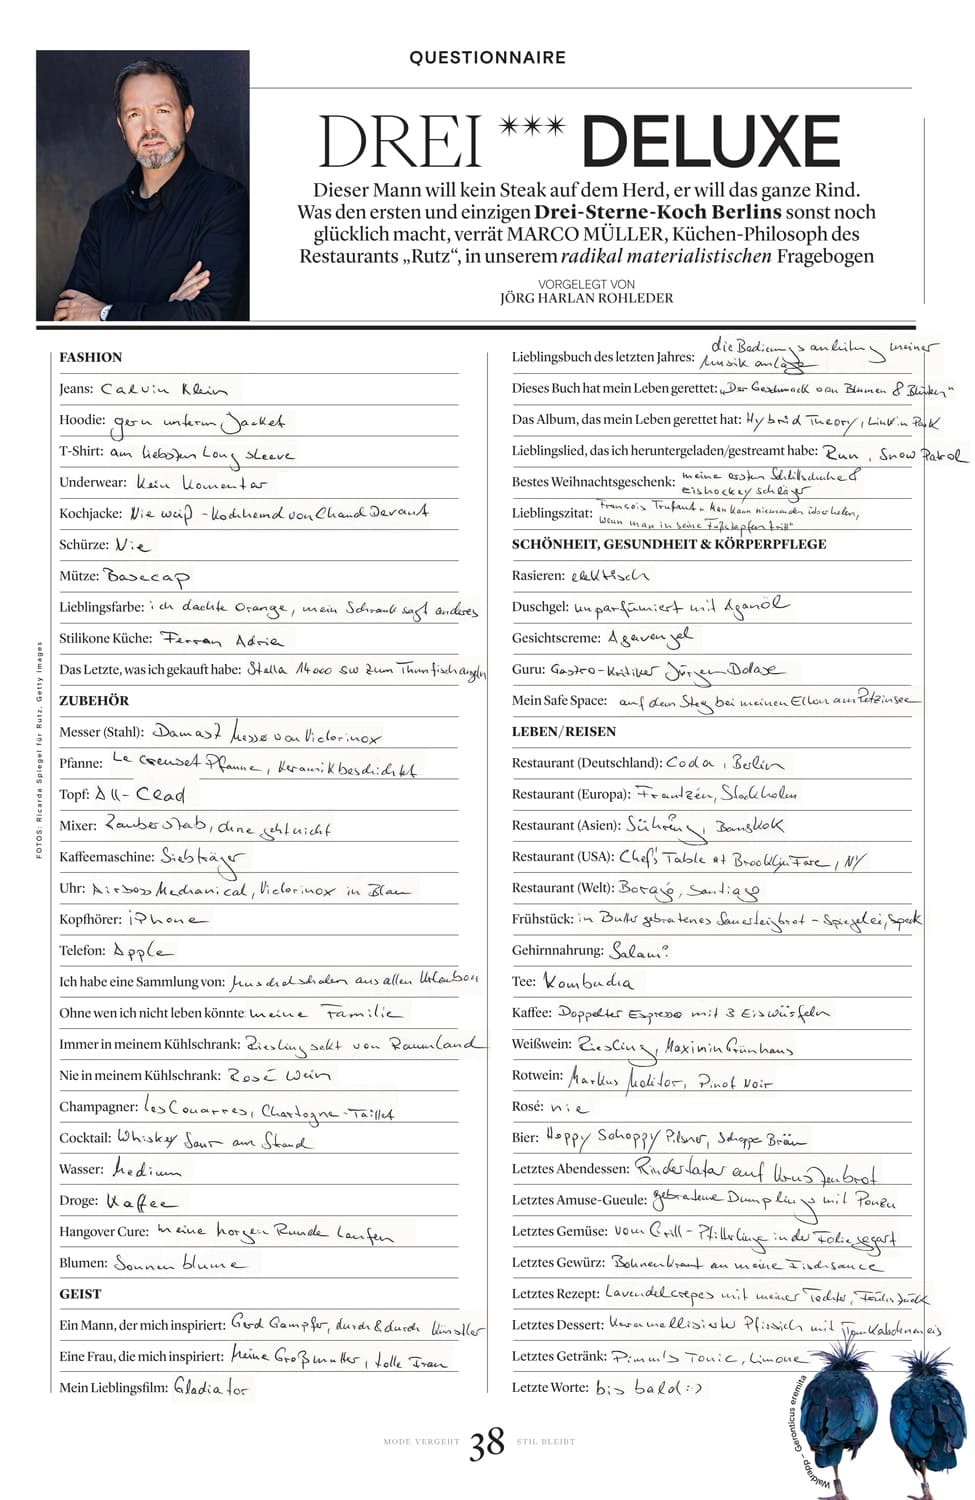 QUESTIONNAIRE
DREI *** DELUXE
Dieser Mann will kein Steak auf dem Herd, er will das ganze Rind.
Was den ersten und einzigen Drei-Sterne-Koch Berlins sonst noch
glücklich macht, verrät MARCO MÜLLER, Küchen-Philosoph des
Restaurants „Rutz“, in unserem radikal materialistischen Fragebogen
VORGELEGT VON
JÖRG HARLAN ROHLEDER
FASHION
Jeans: Calvin Klein
Hoodie: gern unterm Jacket
T-Shirt: am liebsten Long sleeve
Underwear: Kein Komentar
Kochjacke: Nie weiß - Kochhemd von Chaud Devant
Schürze: Nie
Mütze: Basecap
Lieblingsfarbe: ich dachte Orange, mein Schrank sagt anderes
Stilikone Küche: Ferran Adria
Das Letzte, was ich gekauft habe: Stella 14000 SW zum Thunfischangeln
ZUBEHÖR
Messer (Stahl): Damast Messer von Victorinox
Pfanne: Le Creuset Pfanne, Keramikbeschichtet
Topf: All-Clad
Mixer: Zauberstab, ohne geht nicht
Kaffeemaschine: Siebträger
Uhr: Airboss Mechanical, Victorinox in Blau
Kopfhörer: iPhone
Telefon: Apple
Ich habe eine Sammlung von: Muschelschalen aus allen Urlauben
Ohne wen ich nicht leben könnte meine Familie
Immer in meinem Kühlschrank: Rieslingsekt von Raumland
Nie in meinem Kühlschrank: Rosé Wein
Champagner: Les Couarres, Chartogne-Taillet
Cocktail: Whiskey Sour am Strand
Wasser: Medium
Droge: Kaffee
Hangover Cure: meine morgen Runde Laufen
Blumen: Sonnenblume
GEIST
Ein Mann, der mich inspiriert: Gerd Gampfer, durch & durch Künstler
Eine Frau, die mich inspiriert: Meine Großmutter, tolle Frau
Mein Lieblingsfilm: Gladiator
Lieblingsbuch des letzten Jahres: die Bedienungsanleitung meiner
Musikanlage
Dieses Buch hat mein Leben gerettet: „Der Geschmack von Blumen & Blüten“
Das Album, das mein Leben gerettet hat: Hybrid Theory, Linkin Park
Lieblingslied, das ich heruntergeladen/gestreamt habe: Run, Snow Patrol
Bestes Weihnachtsgeschenk: meine ersten Schlittschuhe &
Eishockeyschläger
Lieblingszitat: Francois Trufaut „Man kann niemanden überholen,
wenn man in seine Fußstapfen tritt“
SCHÖNHEIT, GESUNDHEIT & KÖRPERPFLEGE
Rasieren: elektrisch
Duschgel: unparfümiert mit Arganöl
Gesichtscreme: Agavengel
Guru: Gastro-Kritiker Jürgen Dollase
Mein Safe Space: auf dem Steg bei meinen Eltern am Petzinsee
LEBEN/REISEN
Restaurant (Deutschland): Coda, Berlin
Restaurant (Europa): Frantzén, Stockholm
Restaurant (Asien): Sühring, Bangkok
Restaurant (USA): Chef's Table at Brooklyn Fare, NY
Restaurant (Welt): Boragó, Santiago
Frühstück: in Butter gebratenes Sauerteigbrot - Spiegelei, Speck
Gehirnnahrung: Salami?
Tee: Kombucha
Kaffee: Doppelter Espresso mit 3 Eiswürfeln
Weißwein: Riesling, Maximin Grünhaus
Rotwein: Markus Molitor, Pinot Noir
Rosé: nie
Bier: Hoppy Schoppy Pilsner, Schoppe Bräu
Letztes Abendessen: Rindertatar auf Krustenbrot
Letztes Amuse-Gueule: gebratene Dumplings mit Ponzu
Letztes Gemüse: vom Grill - Pfifferlinge in der Folie gegart
Letztes Gewürz: Bohnenkraut an meine Fischsauce
Letztes Rezept: Lavendelcrepes mit meiner Tochter, Frühstück
Letztes Dessert: Karamellisierter Pfirsich mit Tonkabohneneis
Letztes Getränk: Pimm's Tonic, Limone
Letzte Worte: bis bald :-)
FOTOS: Ricarda Spiegel für Rutz, Getty Images
Waldrapp – Geronticus eremita
MODE VERGEHT 38 STIL BLEIBT